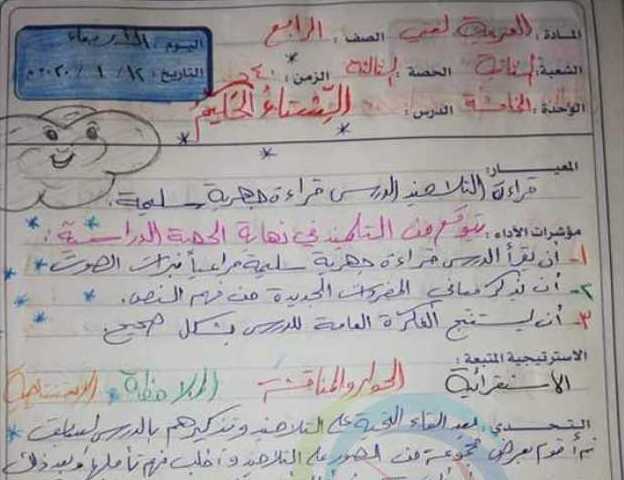 المادة: العربية لغتي الصف: الرابع اليوم: الأربعاء
الشعبة: الثانية الحصة: الثالثة الزمن: ٤٠ التاريخ: ١ / ٢٠٢٠ م
الوحدة: الخامسة الدرس: الشتاء الحكيم
المعيار:
قراءة التلاميذ الدرس قراءة جهرية سليمة.
مؤشرات الأداء: يتوقع من التلميذ في نهاية الحصة الدراسية:
١- أن يقرأ الدرس قراءة جهرية سليمة مراعياً نبرات الصوت
٢- أن يذكر معاني المفردات الجديدة من فهم النص.
٣- أن يستنتج الفكرة العامة للدرس بشكل صحيح.
الاستراتيجية المتبعة:
الاستقرائية الحوار والمناقشة الملاحظة
التحدي: بعد القاء التحية على التلاميذ وتذكيرهم بالدرس السابق
ثم أقوم بعرض مجموعة من الصور على التلاميذ وأطلب منهم تأملها وبعد ذلك